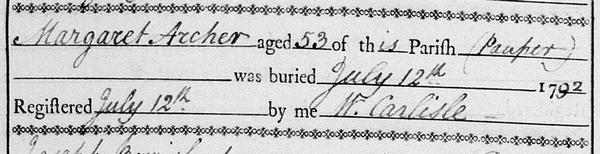 Margaret Archer aged 53 of this Parish (Pauper)
was buried July 12th 1792
Registered July 12th by me W. Carlisle
Joseph